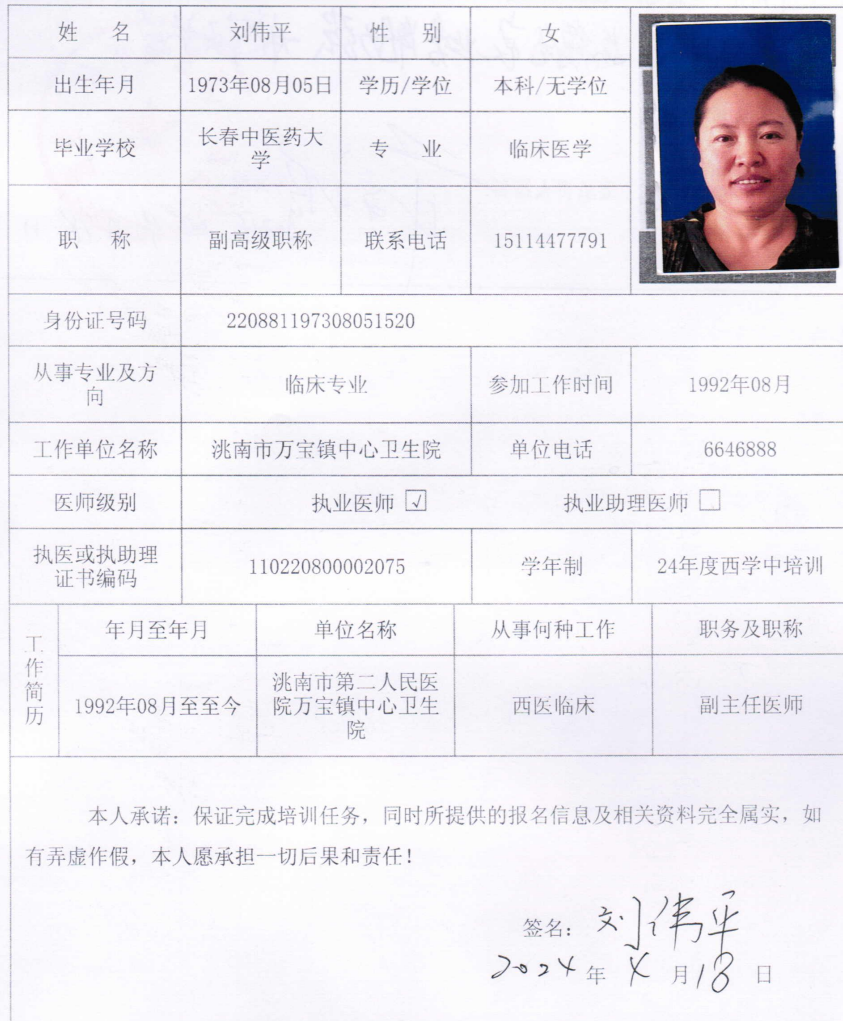 姓 名 刘伟平 性 别 女
出生年月 1973年08月05日 学历/学位 本科/无学位
毕业学校 长春中医药大学 专 业 临床医学
职 称 副高级职称 联系电话 15114477791
身份证号码 220881197308051520
从事专业及方向 临床专业 参加工作时间 1992年08月
工作单位名称 洮南市万宝镇中心卫生院 单位电话 6646888
医师级别 执业医师 ☑ 执业助理医师 □
执医或执助理证书编码 110220800002075 学年制 24年度西学中培训
工作简历
年月至年月 单位名称 从事何种工作 职务及职称
1992年08月至至今 洮南市第二人民医院万宝镇中心卫生院 西医临床 副主任医师
本人承诺：保证完成培训任务，同时所提供的报名信息及相关资料完全属实，如
有弄虚作假，本人愿承担一切后果和责任！
签名：刘伟平
2024年4月18日